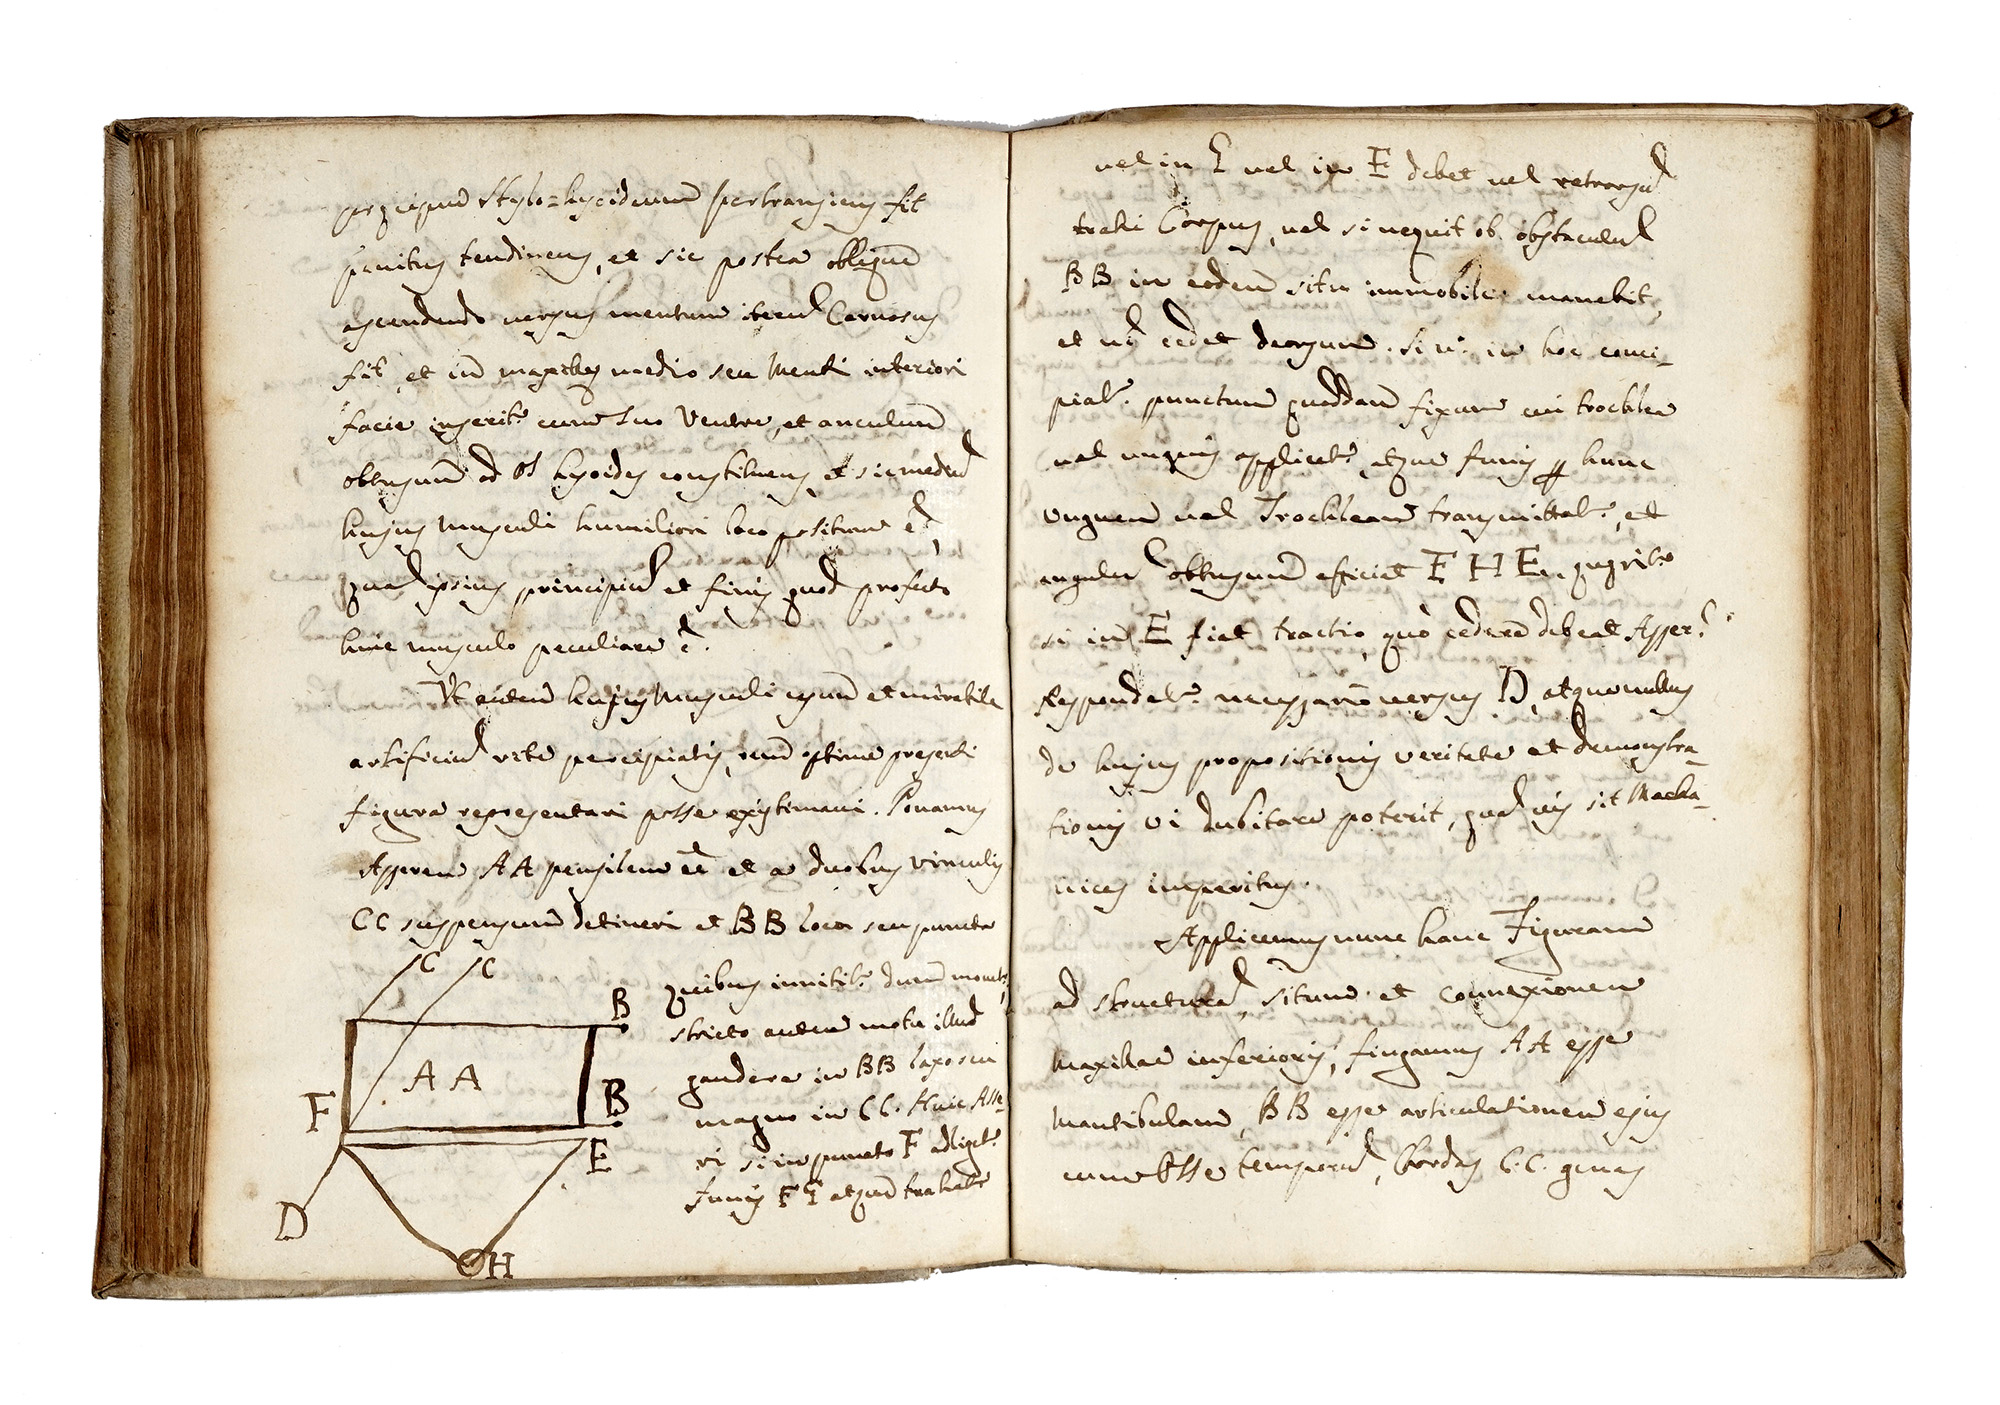 Stylo=hyoideum pertransiens fit
penitus tendineus, et sic postea obliquè
ascendendo versus mentum iterũ Carnosus
fit, et in maxillæ medio seu Menti interiori
facie inserit.r cum suo Ventre, et angulum
obtusum ad Os hyoides constituens, et sic medium
hujus Musculi humiliori loco positum ẽ,
quam ipsius principiũ et finis quod profecto
huic musculo peculiare ẽ.
Vt autem hujus Musculi usum et mirabile
artificiũ rite percipiatis, rem optime præsenti
figura repræsentari posse existimavi. Ponamus
Asserem AA pensilem eẽ et a duobus vinculis
CC suspensum detineri et BB loca seu puncta
C C
quibus innitit.r dum movet.r,
B
stricto autem motu illud
gaudere in BB laxiori
A A
magno in CC. Huic Asse-
F B
ri si in puncto F adliget.r
E
funis F atque trahat.r
D
H
vel in vel in E debet vel retrorsũ
trahi Corpus, vel si nequit ob obstaculũ
BB in eodem situ immobile manebit,
et cedet deorsum. Si v.o in hoc conci-
piat.r punctum quoddam fixum cui trochlea
vel uncus applicet.r atque funis hunc
uncum vel Trochleam transmittat.r, et
angulũ obtusum efficiat F H E. quærit.r
si in E fiat tractio, quò cedere debeat Asser?
Respondet.r necessariò versus D, atque nullus
de hujus propositionis veritate et demonstra-
tionis vi dubitare poterit, quamvis sit Mecha-
nices imperitus.
Applicemus nunc hanc Figuram
ad structurã, situm et connexionem
Maxillæ inferioris, fingamus AA esse
Mantibulam, BB esse articulationem ejus
cum Osse temporũ, Chordas C.C. genas